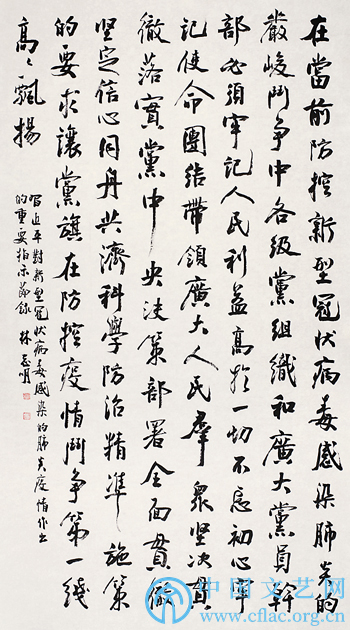 在當前防控新型冠状病毒感染肺炎的
嚴峻鬥争中各級黨組織和廣大黨員幹
部必須牢記人民利益高於一切不忘初心牢
記使命團结帶領廣大人民羣衆坚决貫
徹落實黨中央决策部署全面貫徹
坚定信心同舟共濟科學防治精準施策
的要求讓黨旗在防控疫情鬥争第一綫
高々飄揚
習近平對新型冠状病毒感染的肺炎疫情作出
的重要指示節録 林
中国文艺网
www.cflac.org.cn